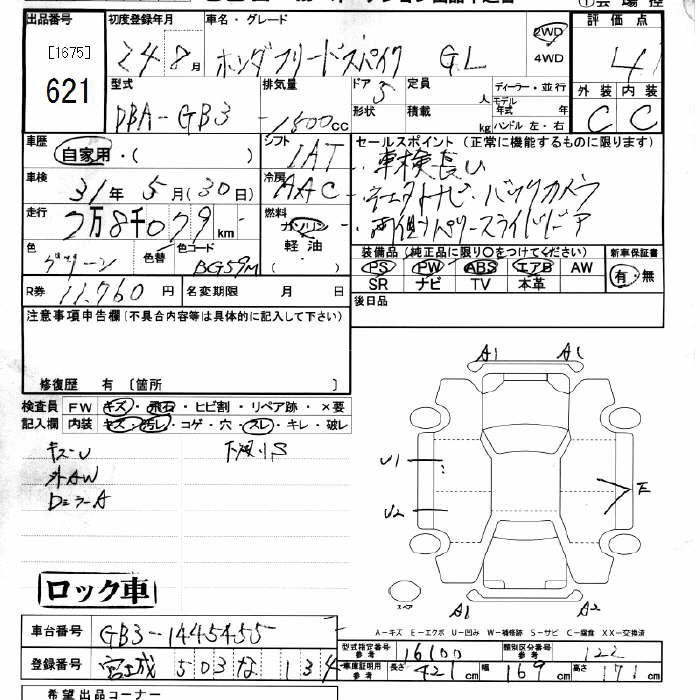 出品番号 初度登録年月 車名・グレード ①会場控
[1675] 24 8月 ホンダ フリードスパイク GL 2WD 4WD 評価点 4
621 型式 排気量 ドア 定員 ディーラー・並行 外装 内装
DBA-GB3 1500cc 5 人 モデル年式 年 C C
形状 積載 kg ハンドル 左・右
車歴 自家用・( ) シフト IAT セールスポイント (正常に機能するものに限ります)
車検 31年 5月(30日) 冷房 AAC 車検長い
走行 2万8千079km 燃料 ガソリン 軽油 ( ) ナビ・バックカメラ
パワースライドドア
色 グリーン 色替 色コード BG59M 装備品 (純正品に限り○をつけてください) 新車保証書
PS PW ABS エアB AW 有・無
SR ナビ TV 本革
R券 11,760円 名変期限 月 日 後日品
注意事項申告欄(不具合内容等は具体的に記入して下さい)
修復歴 有 〔箇所
検査員 FW キズ・飛石・ヒビ割・リペア跡・×要
記入欄 内装 キズ・汚れ・コゲ・穴・スレ・キレ・破レ
キズU 下廻りS
外AW
DミラーA
A1
U1
U2
E
スペア
A1 A2
ロック車
A-キズ E-エクボ U-凹み W-補修跡 S-サビ C-腐食 XX-交換済
車台番号 GB3-1445455
登録番号 宮城 503 な 134
型式指定番号 参考 16100 類別区分番号 参考 122
車庫証明用 参考 長さ 421cm 幅 169cm 高さ 171cm
希望出品コーナー